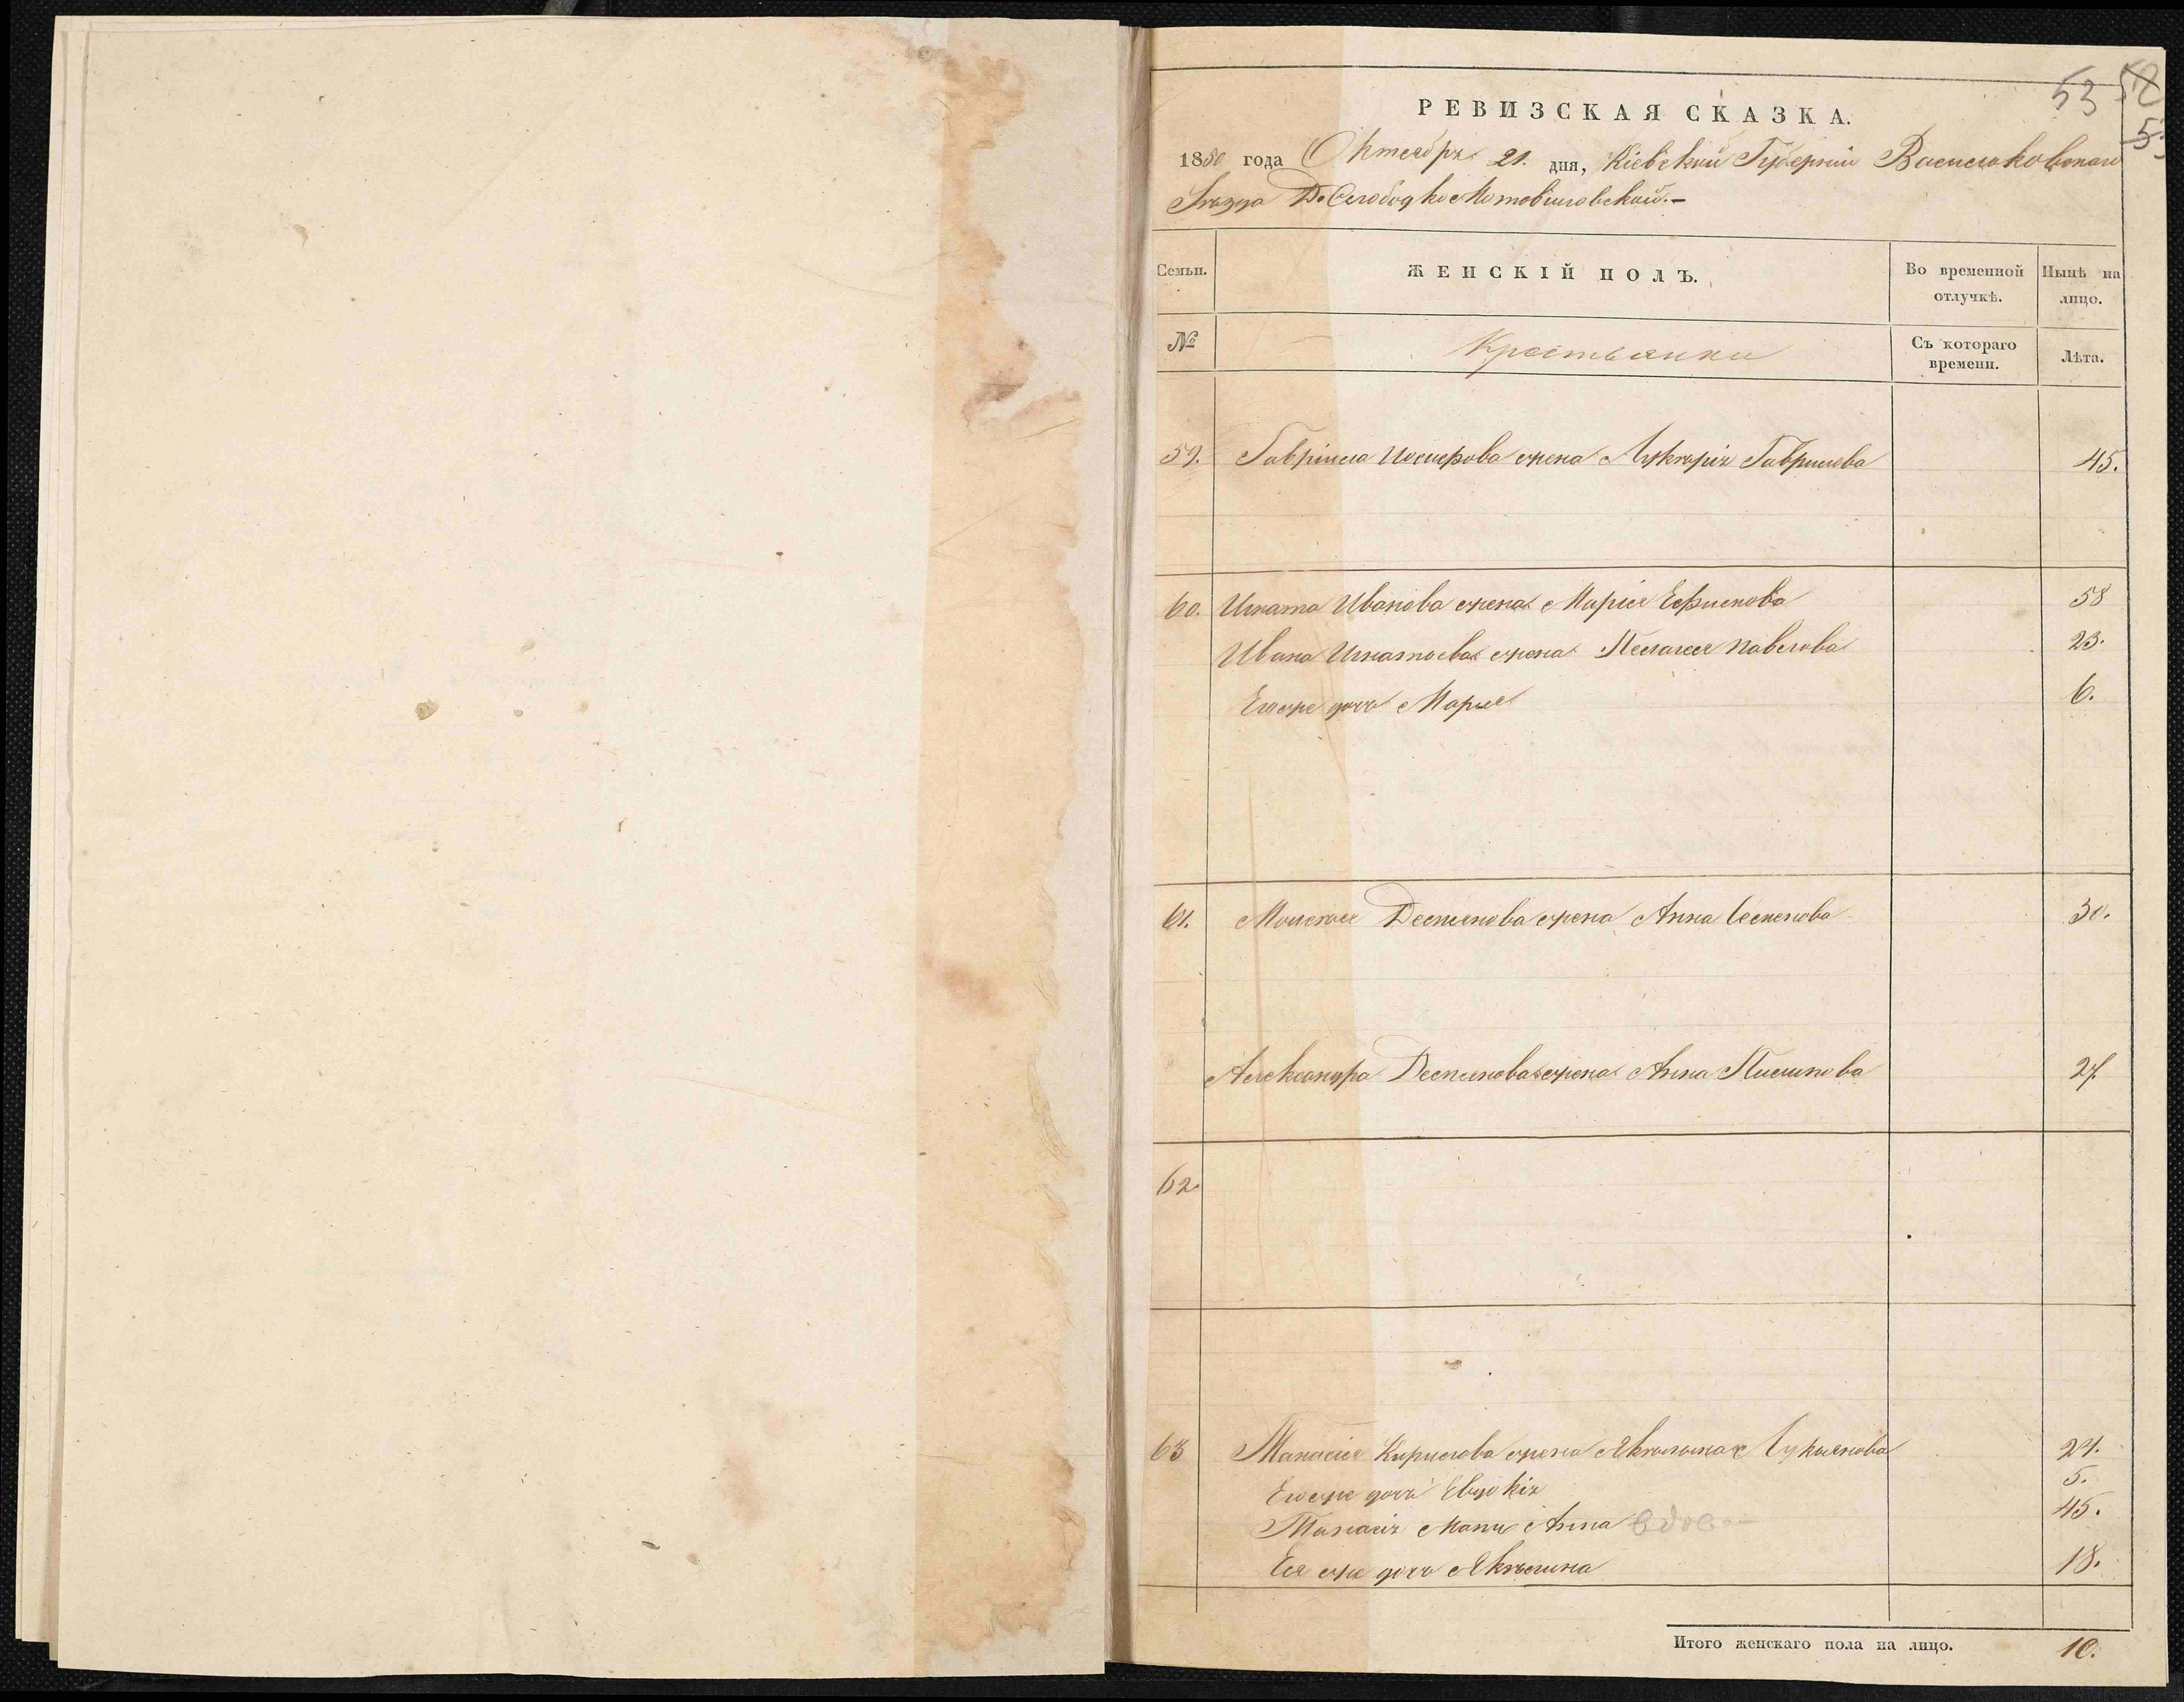 53 52
5
РЕВИЗСКАЯ СКАЗКА.
1850 года Октября 21. дня, Кіевской Губерніи Васильковскаго
Уѣзда Д. Слободко Мотовиловской.-
Семьи.
ЖЕНСКІЙ ПОЛЪ.
Во временной отлучкѣ.
Нынѣ на лицо.
№
Крестьянки
Съ котораго времени.
Лѣта.
59. Гавріила Иосифова жена Лукерія Гаврилова 45.
60. Игната Иванова жена Марія Ефимова 58
Ивана Игнатоева жена Пелагея Павлова 23.
Егоже дочь Марья 6.
61. Моисея Демянова жена Анна Семенова 30.
Александра Демянова жена Анна 27.
62.
63 Танасія Кирилова жена Акилина Лукянова 24.
Егоже дочь Евдокія 5.
Танасія мать Анна вдова 45.
Ея же дочь Акилина 18.
Итого женскаго пола на лицо. 10.